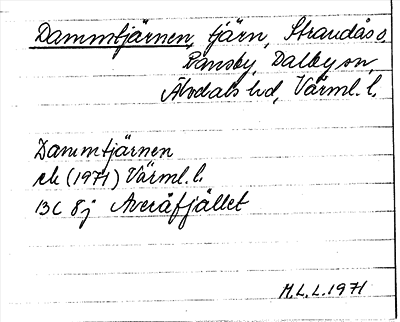 Dammtjärnen, tjärn, Strandås o.
Ransby, Dalby sn,
Älvdals hd, Värml. l.
Dammtjärnen
ek (1971) Värml. l.
13C 8j Averåfjället
M.L.L. 1971